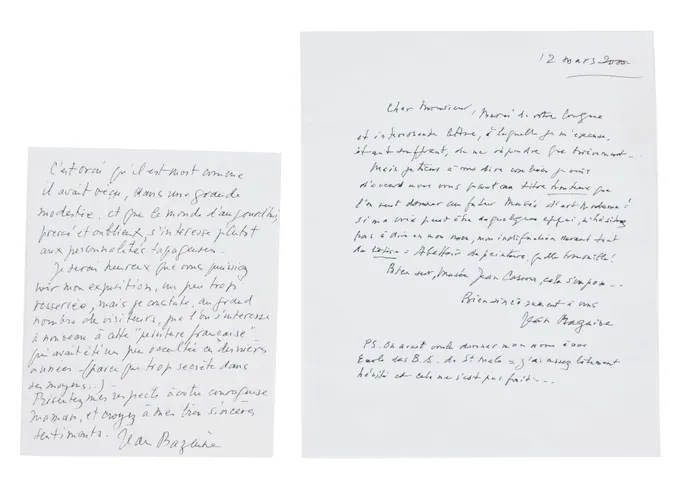 C'est vrai qu'il est mort comme
il avait vécu, dans une grande
modestie, et que le monde d'aujourd'hui,
pressé et oublieux, s'intéresse plutôt
aux personnalités tapageuses.
Je serai heureux que vous puissiez
voir mon exposition, un peu trop
resserrée, mais je constate, au grand
nombre de visiteurs, que l'on s'intéresse
à nouveau à cette "peinture française"
qui avait été un peu occultée ces dernières
années - (parce que trop secrète dans
ses moyens..)
Présentez mes respects à votre courageuse
maman, et croyez à mes très sincères
sentiments. Jean Bazaine
12 mars 2000
Cher Monsieur,
Merci de votre longue
et intéressante lettre, à laquelle je m'excuse,
étant souffrant, de ne répondre que brièvement..
Mais je tiens à vous dire combien je suis
d'accord avec vous quant au titre que
l'on veut donner au futur Musée d'art moderne!
si ma voix peut être de quelque appui, n'hésitez
pas à dire en mon nom, mon indignation devant tant
de = Abattoir de peinture, quelle trouvaille!
Bien sûr, Musée Jean Cassou, cela s'impose...
Bien sincèrement à vous
Jean Bazaine
PS. On avait voulu donner mon nom à une
Ecole des B.A. de St Malo = j'ai assez bêtement
hésité et cela ne s'est pas fait...